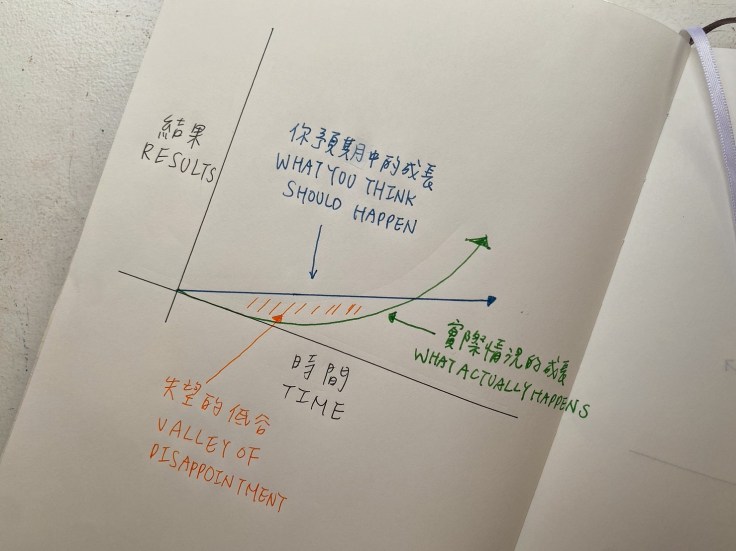 結果
RESULTS
你預期中的成長
WHAT YOU THINK
SHOULD HAPPEN
實際情況的成長
WHAT ACTUALLY HAPPENS
時間
TIME
失望的低谷
VALLEY OF
DISAPPOINTMENT